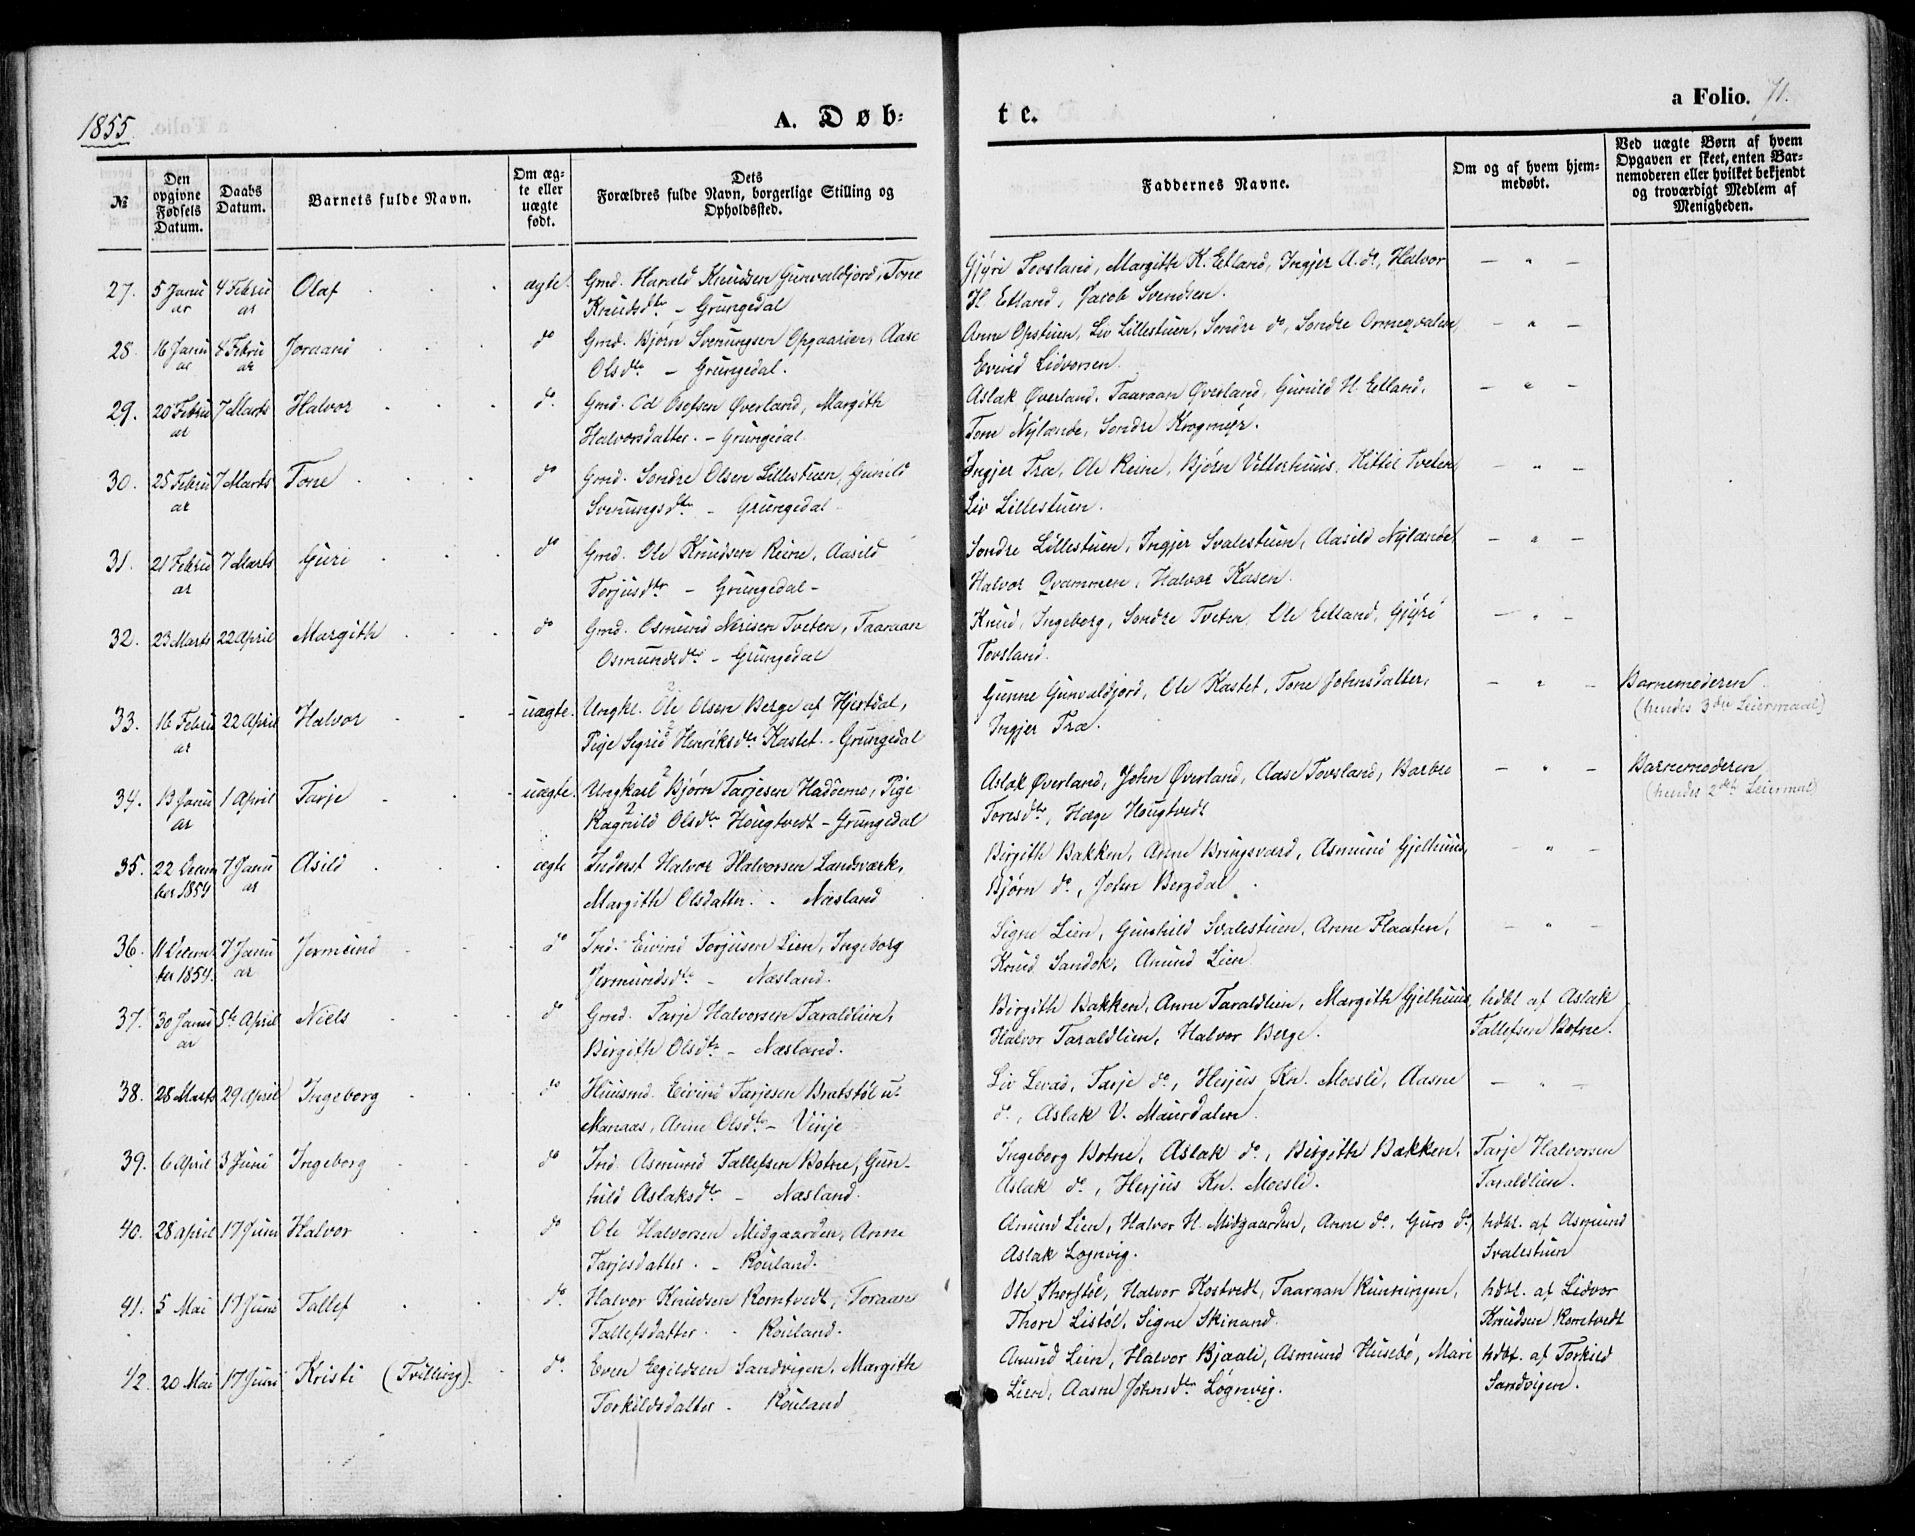 1855.
A. Døb-
te.
a Folio. 71.
№
Den opgivne Fødsels Datum.
Daabs Datum.
Barnets fulde Navn.
Om ægte eller uægte født.
Dets Forældres fulde Navn, borgerlige Stilling og Opholdssted.
Faddernes Navne.
Om og af hvem hjemmedøbt.
Ved uægte Børn af hvem Opgaven er skeet, enten Barnemoderen eller hvilket bekjendt og troværdigt Medlem af Menigheden.
27. 5 Januar 4 Februar Olaf ægte. Gmd. Harald Knudsen Gunvaldjord, Tone
Knudsdtr - Grungedal
Gjyri Tovsland, Margith K. Eiland, Ingjer A. do, Halvor
H Etland, Jacob Svendsen. — " —
28. 16 Januar 4 Februar Joraand do Gmd. Bjørn Svenungsen Opgaarien, Aase
Olsdtr - Grungedal.
Anne Opstuen, Liv Lillestuen, Sondre do, Sondre Ormeqvalen — " —
Eivind Lidvorsen.
29. 20 Februar 7 Marts Halvor do. Gmd. Od Olefsen Øverland, Margith
Halvorsdatter. - Grungedal
Aslak Øverland, Taaraan Øverland, Gunild H. Eiland, — " —
Tone Nylænde, Sondre Krogmyr.
30. 25 Februar 7 Marts Tone do Gmd. Sondre Olsen Lillestuen, Gunild
Svenungsdtr - Grungedal -
Ingjer Træ, Ole Reine, Bjørn Villerhuus, Kittil Tveten — " —
Liv Lillestuen.
31. 21 Februar 7 Marts Guri do Gmd. Ole Knudsen Reine, Aasild
Torjusdtr - Grungedal -
Sondre Lillestuen, Ingjer Svalestuen, Aasild Nylænde — " —
Halvor Qvammen, Halvor Kasen.
32. 23 Marts 22 April Margith do Gmd. Osmund Nerisen Tveten, Taaraan
Osmundsdtr - Grungedal
Knud, Ingeborg, Sondre Tveten, Ole Eiland, Gjyri — " —
Tovsland.
33. 16 Februar 22 April Halvor uægte. Ungkl. Ole Olsen Berge af Hjertdal,
Pige Sigrid Henriksdtr Kastet - Grungedal
Gunne Gunvaldjord, Ole Kastet, Tone Johnsdatter, — " — Barnemoderen
Ingjer Træ. (hendes 3die Leiermaal)
34. 13 Januar 1 April Tarje uægte. Ungkarl Bjørn Tarjesen Haddemo, Pige
Ragnild Olsdtr Hougtvedt - Grungedal
Aslak Øverland, John Øverland, Aase Tovsland, Barbro — " — Barnemoderen
Toresdtr, Hæge Hougtvedt (hendes 2det Leiermal)
35. 22 December 1854 7 Januar Asild ægte Inderst Halvor Halvorsen Landsværk,
Margith Olsdatter. - Næsland
Birgith Bakken, Anne Bringsværd, Asmund Gjelhuus, — " —
Bjørn do, John Bergdal.
36. 11 December 1854. 7 Januar Jermund do Ind. Eivind Torjusen Lien, Ingeborg
Jermundsdtr - Næsland.
Signe Lien, Gunhild Svalestuen, Anne Flaaten, — " —
Knud Sandok, Amund Lien
37. 30 Januar 5te April Niels do Gmd. Tarje Halvorsen Taraldlien,
Birgith Olsdtr - Næsland.
Birgith Bakken, Anne Taraldlien, Margith Gjelhuus, hdbt af Aslak
Halvor Taraldlien, Halvor Berge. Tallefsen Botne.
38. 28 Marts 29 April Ingeborg do Huusmd. Eivind Tarjesen Bratstøl u.
Manaas, Anne Olsdtr - Vinje
Liv Levad, Tarje do, Herjus Kn. Moesli, Aasne — " —
do, Aslak V. Maurdalen.
39. 6 April 3 Juni Ingeborg do Ind. Asmund Tallefsen Botne, Gun-
hild Aslaksdtr - Næsland.
Ingeborg Botne, Aslak do, Birgith Bakken, Tarje Halvorsen
Aslak do, Herjus Kn. Moesli. Taraldlien.
40. 28 April 17 Juni Halvor do Ole Halvorsen Midgaarden, Anne
Tarjesdatter. - Rouland.
Amund Lien, Halvor H. Midgaarden, Anne do, Guro do, hdbt. af Asmund
Aslak Lognvig. Svalestuen
41. 5 Mai 17 Juni Tallef do. Halvor Knudsen Romtvedt, Toraan
Tallefsdatter. - Rouland.
Ole Thorstøl, Halvor Kostvedt, Taaraan Runningen, hdbt. af Lidvor
Thore Listøl, Signe Skinand. Knudsen Romtvedt
42. 20 Mai 17 Juni Kristi (Tvilling). do. Even Egildsen Sandvigen, Margith
Torkildsdatter - Rouland
Amund Lien, Halvor Bjaali, Asmund Husebø, Mari hdbt. af Torkild
Lien, Aasne Johnsdtr Løgnvig. Sandvigen.